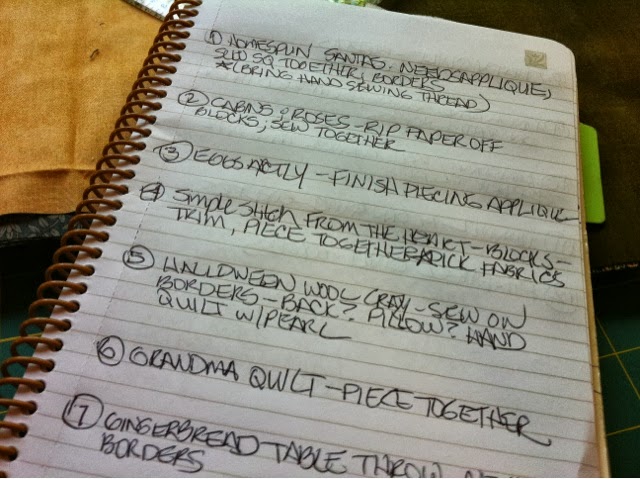 ① HOMESPUN SANTAS. NEEDS APPLIQUE,
SEW SQ TOGETHER, BORDERS
*(BRING HAND SEWING THREAD)
② CABINS & ROSES - RIP PAPER OFF
BLOCKS, SEW TOGETHER
③ EGGSACTLY - FINISH PIECING APPLIQUE
④ SIMPLE STITCH FROM THE HEART - BLOCKS -
TRIM, PIECE TOGETHER & PICK FABRICS
⑤ HALLOWEEN WOOL CRAZY - SEW ON
BORDERS - BACK? PILLOW? HAND
QUILT W/PEARL
⑥ GRANDMA QUILT - PIECE TOGETHER
⑦ GINGERBREAD TABLE THROW
BORDERS